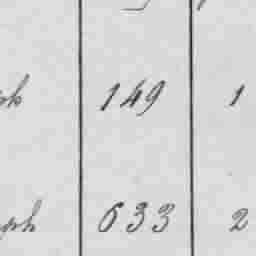 ph 149 1
ph 633 2